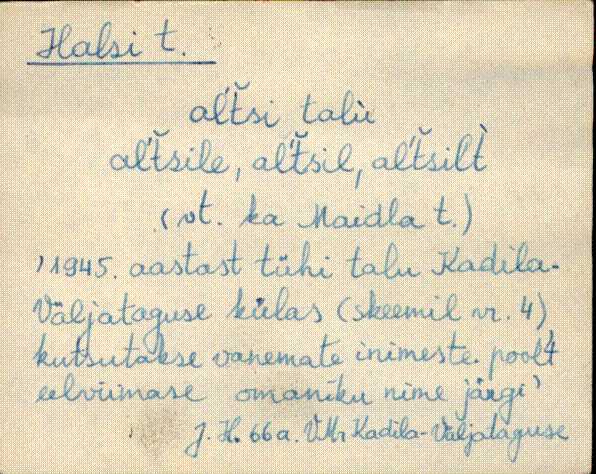 Halsi t.
al't̆si talù
al't̆sile, al't̆sil, al't̆silt̀
(vt. ka Maidla t.)
'1945. aastast tühi talu Kadila-
Väljataguse külas (skeemil nr. 4)
kutsutakse vanemate inimeste poolt
eelviimase omaniku nime järgi'
J. H. 66 a. VMr Kadila-Väljataguse